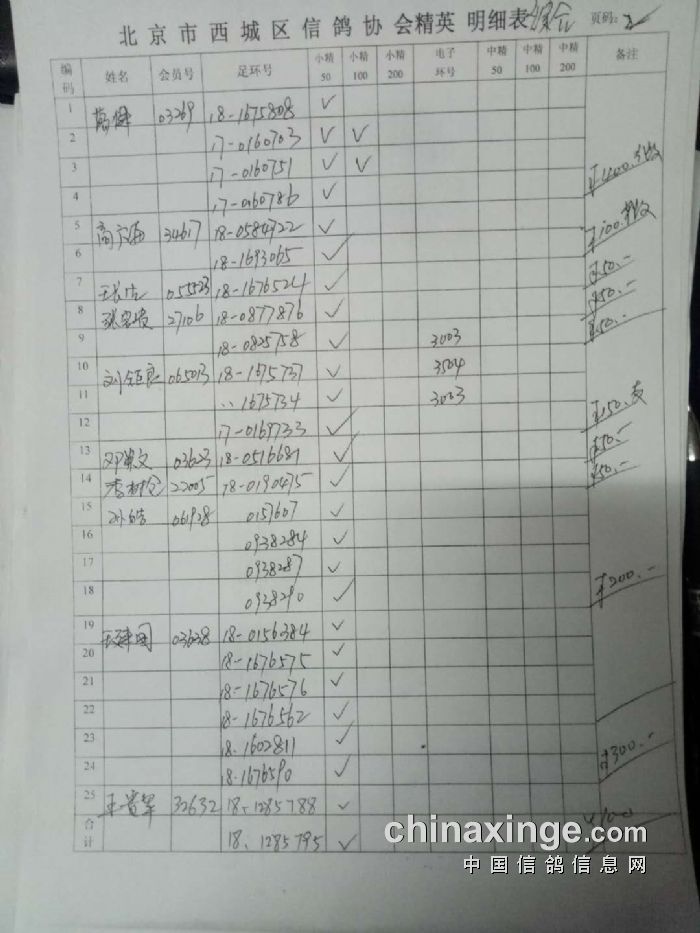 北京市西城区信鸽协会精英 明细表 综合 页码: 2
编码 姓名 会员号 足环号 小精50 小精100 小精200 电子环号 中精50 中精100 中精200 备注
1 03269 18-1675808 ✓
2 17-0160703 ✓ ✓
3 17-0160751 ✓ ✓
4 17-0160786 ✓ ¥400.
5 34617 18-0584722 ✓
6 18-1693065 ✓ ¥100.
7 055523 18-1676524 ✓ ¥50.-
8 27106 18-0877876 ✓ ¥50.-
9 18-0825758 ✓ 3003 ¥50.-
10 刘钜良 065013 18-1675737 ✓ 3504
11 .. 1675734 ✓ 3003
12 17-0169733 ✓ ¥150.
13 邓 文 03623 18-0516681 ✓ ¥50.-
14 李 22005 18-0190475 ✓ ¥50.-
15 孙皓 061928 0157607 ✓
16 0938284 ✓
17 0938287 ✓
18 0938290 ✓ ¥200.-
19 王建国 03638 18-0156384 ✓
20 18-1676575 ✓
21 18-1676576 ✓
22 18-1676562 ✓
23 18.1602811 ✓
24 18-1676590 ✓ ¥300.-
25 王贵军 32632 18.1285788 ✓
合计 18.1285795 ✓ ¥100
chinaxinge.com
中国信鸽信息网